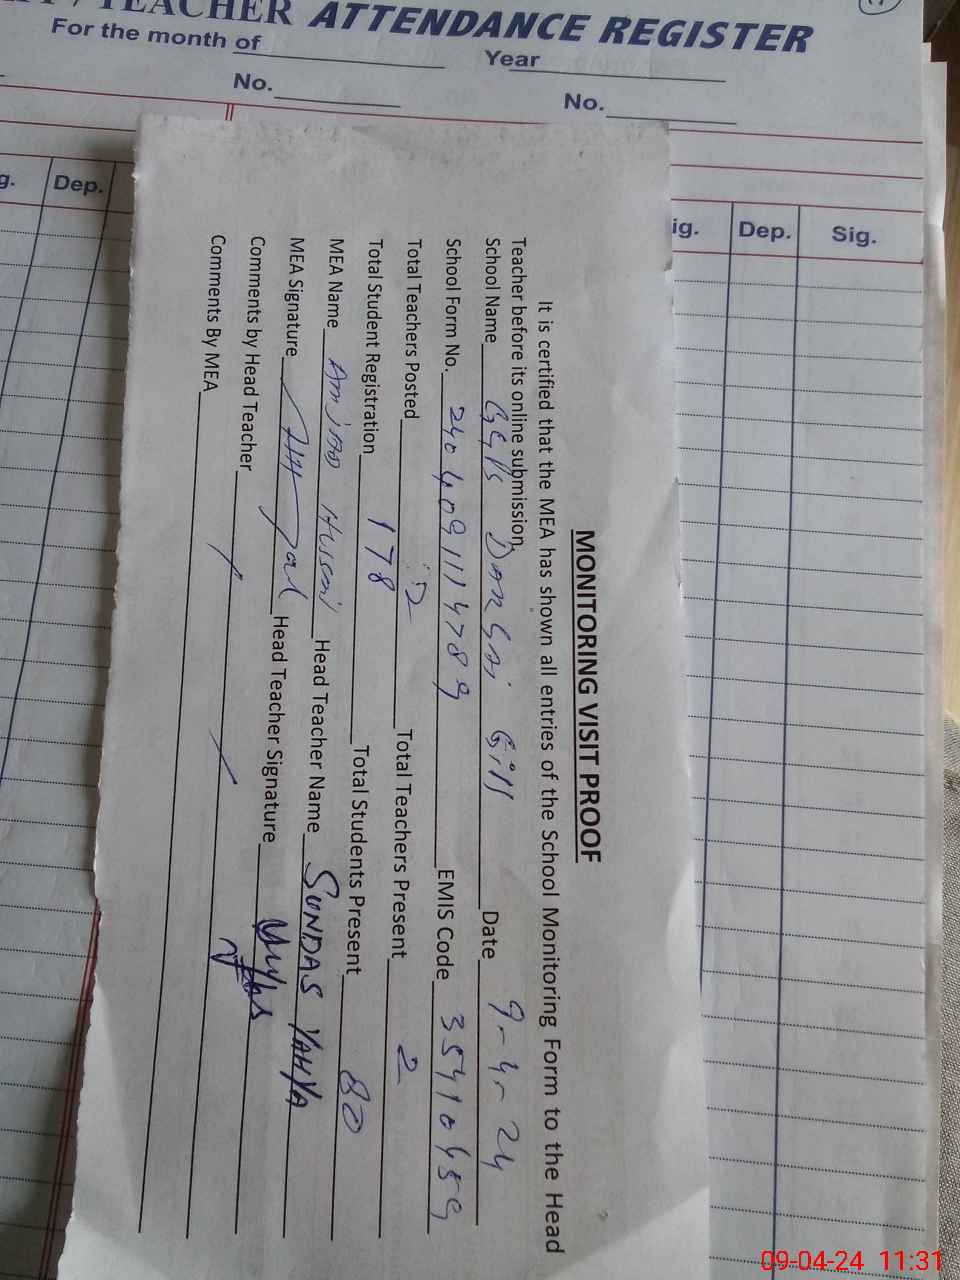 TEACHER ATTENDANCE REGISTER
For the month of
Year
No.
No.
g. Dep.
ig. Dep. Sig.
MONITORING VISIT PROOF
It is certified that the MEA has shown all entries of the School Monitoring Form to the Head
Teacher before its online submission
School Name GGPS Gill Date 9-4-24
School Form No. 2404091114789 EMIS Code 35410459
Total Teachers Posted 2 Total Teachers Present 2
Total Student Registration 178 Total Students Present 80
MEA Name Amjad Hussain Head Teacher Name SUNDAS YAHYA
MEA Signature Head Teacher Signature
Comments by Head Teacher
Comments By MEA
09-04-24 11:31